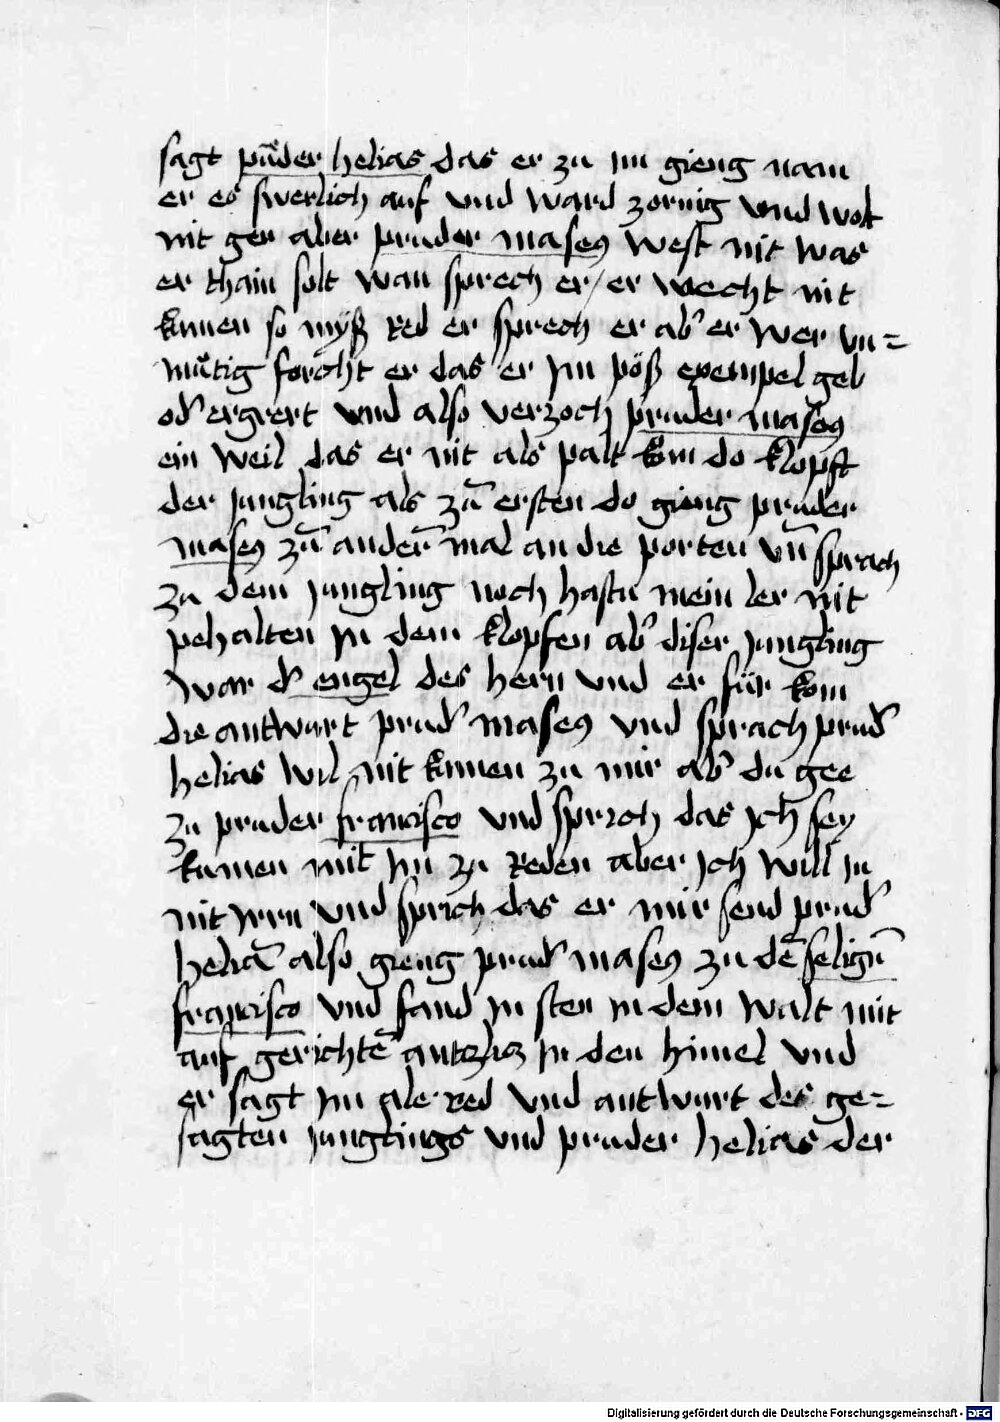 sagt pruͦder helias das er zu im gieng nam
er es swerlich auf und ward zornig und wolt
nit gen aber pruder maseꝰ west nit was
er thain solt wan sprech er / er mecht nit
kumen so mÿß red er sprech er ab᷑ er wer un=
muͤtig forcht er das er im pöß exempel geb
od᷑ ergrert und also verzoch pruder maseꝰ
ein weil das er nit als palt kom do klopft
der jungling als zū ersten do gieng pruder
maseꝰ zū anderm̄ mal an die porten un̄ sprach
zu dem jungling noch hastu mein ler nit
pehalten in dem klopfen ab᷑ diser jungling
war d᷑ engel des hern und er für kom
die antwurt prud᷑ maseꝰ und sprach prud᷑
helias wil nit kumen zu mir ab᷑ du gee
zu pruder francisco und sprich das ich sey
kumen mit im zu reden aber ich will in
nit irrn und sprich das er mir send prud᷑
heliā also gieng prud᷑ maseꝰ zu dē selign̄
francisco und fand in sten in dem walt mit
auf gerichtē antzlitz in den himel und
er sagt im ale red und antwurt des ge=
sagten junglings und pruder helias der
Digitalisierung gefördert durch die Deutsche Forschungsgemeinschaft - DFG